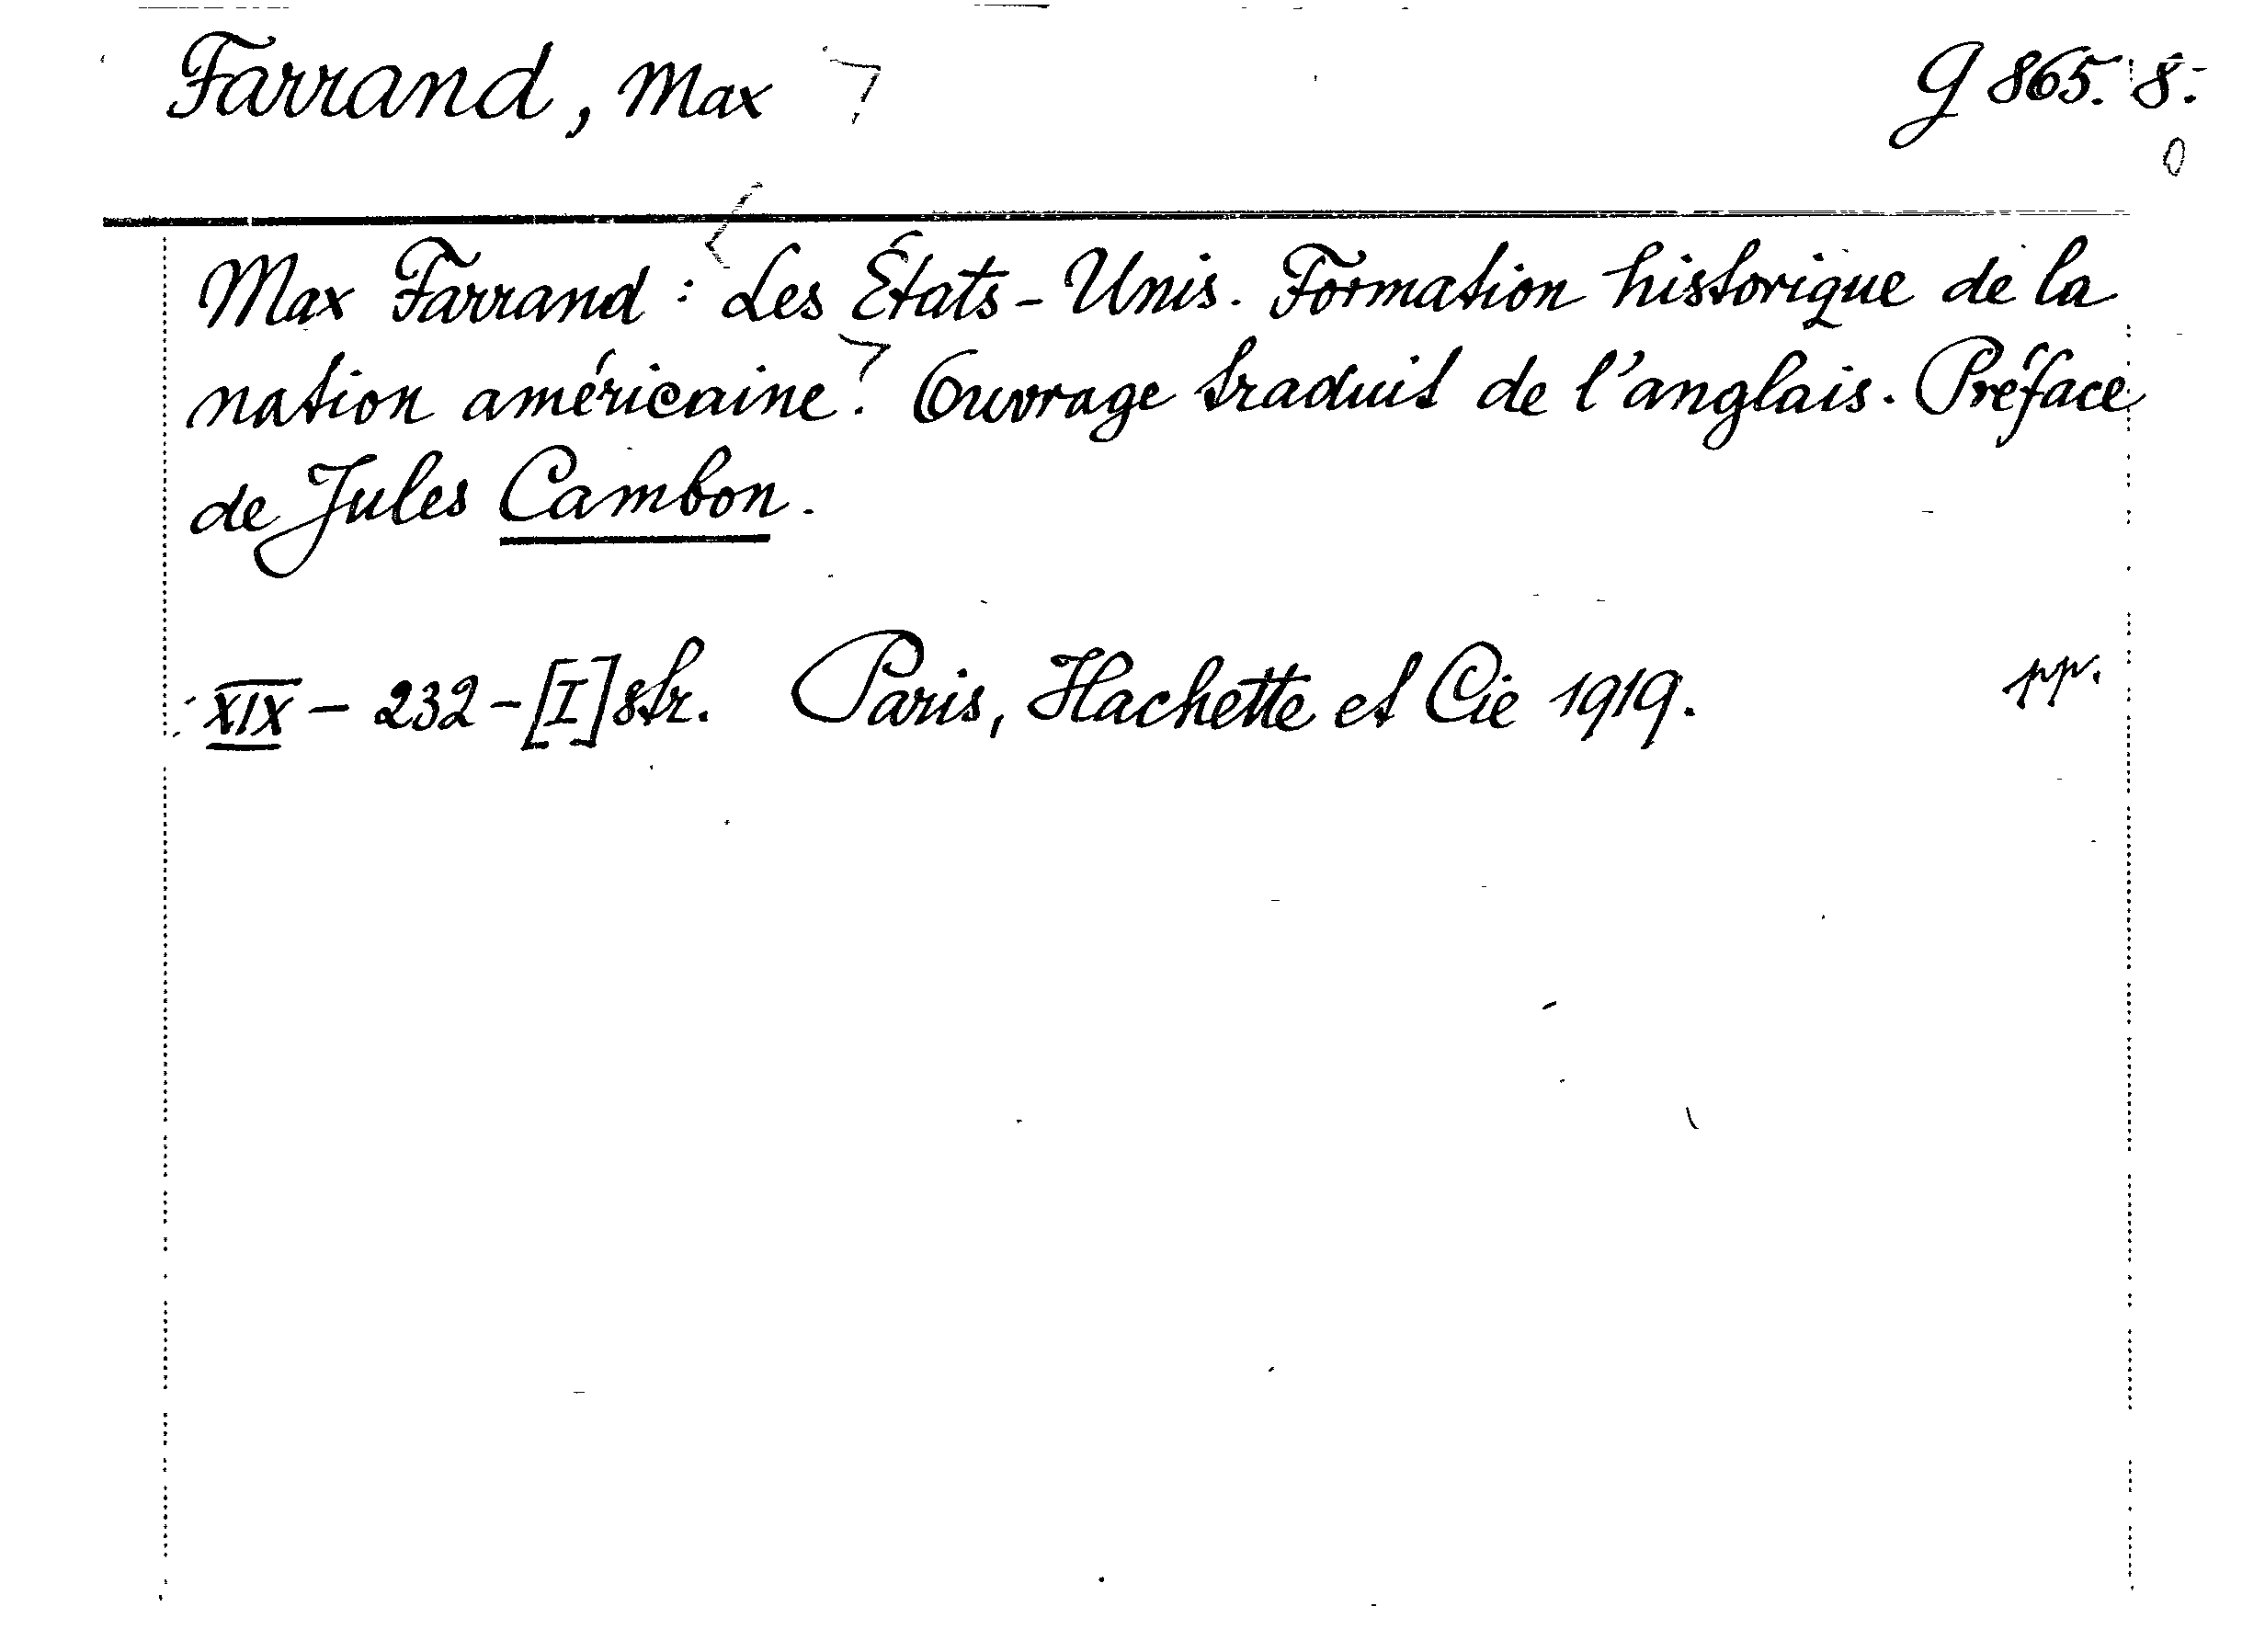 Farrand, Max
g 865. 8.
Max Farrand: Les États-Unis. Formation historique de la
nation américaine. Ouvrage traduit de l'anglais. Préface
de Jules Cambon.
XIX - 232 - [I] str. Paris, Hachette et Cie 1919. pp.